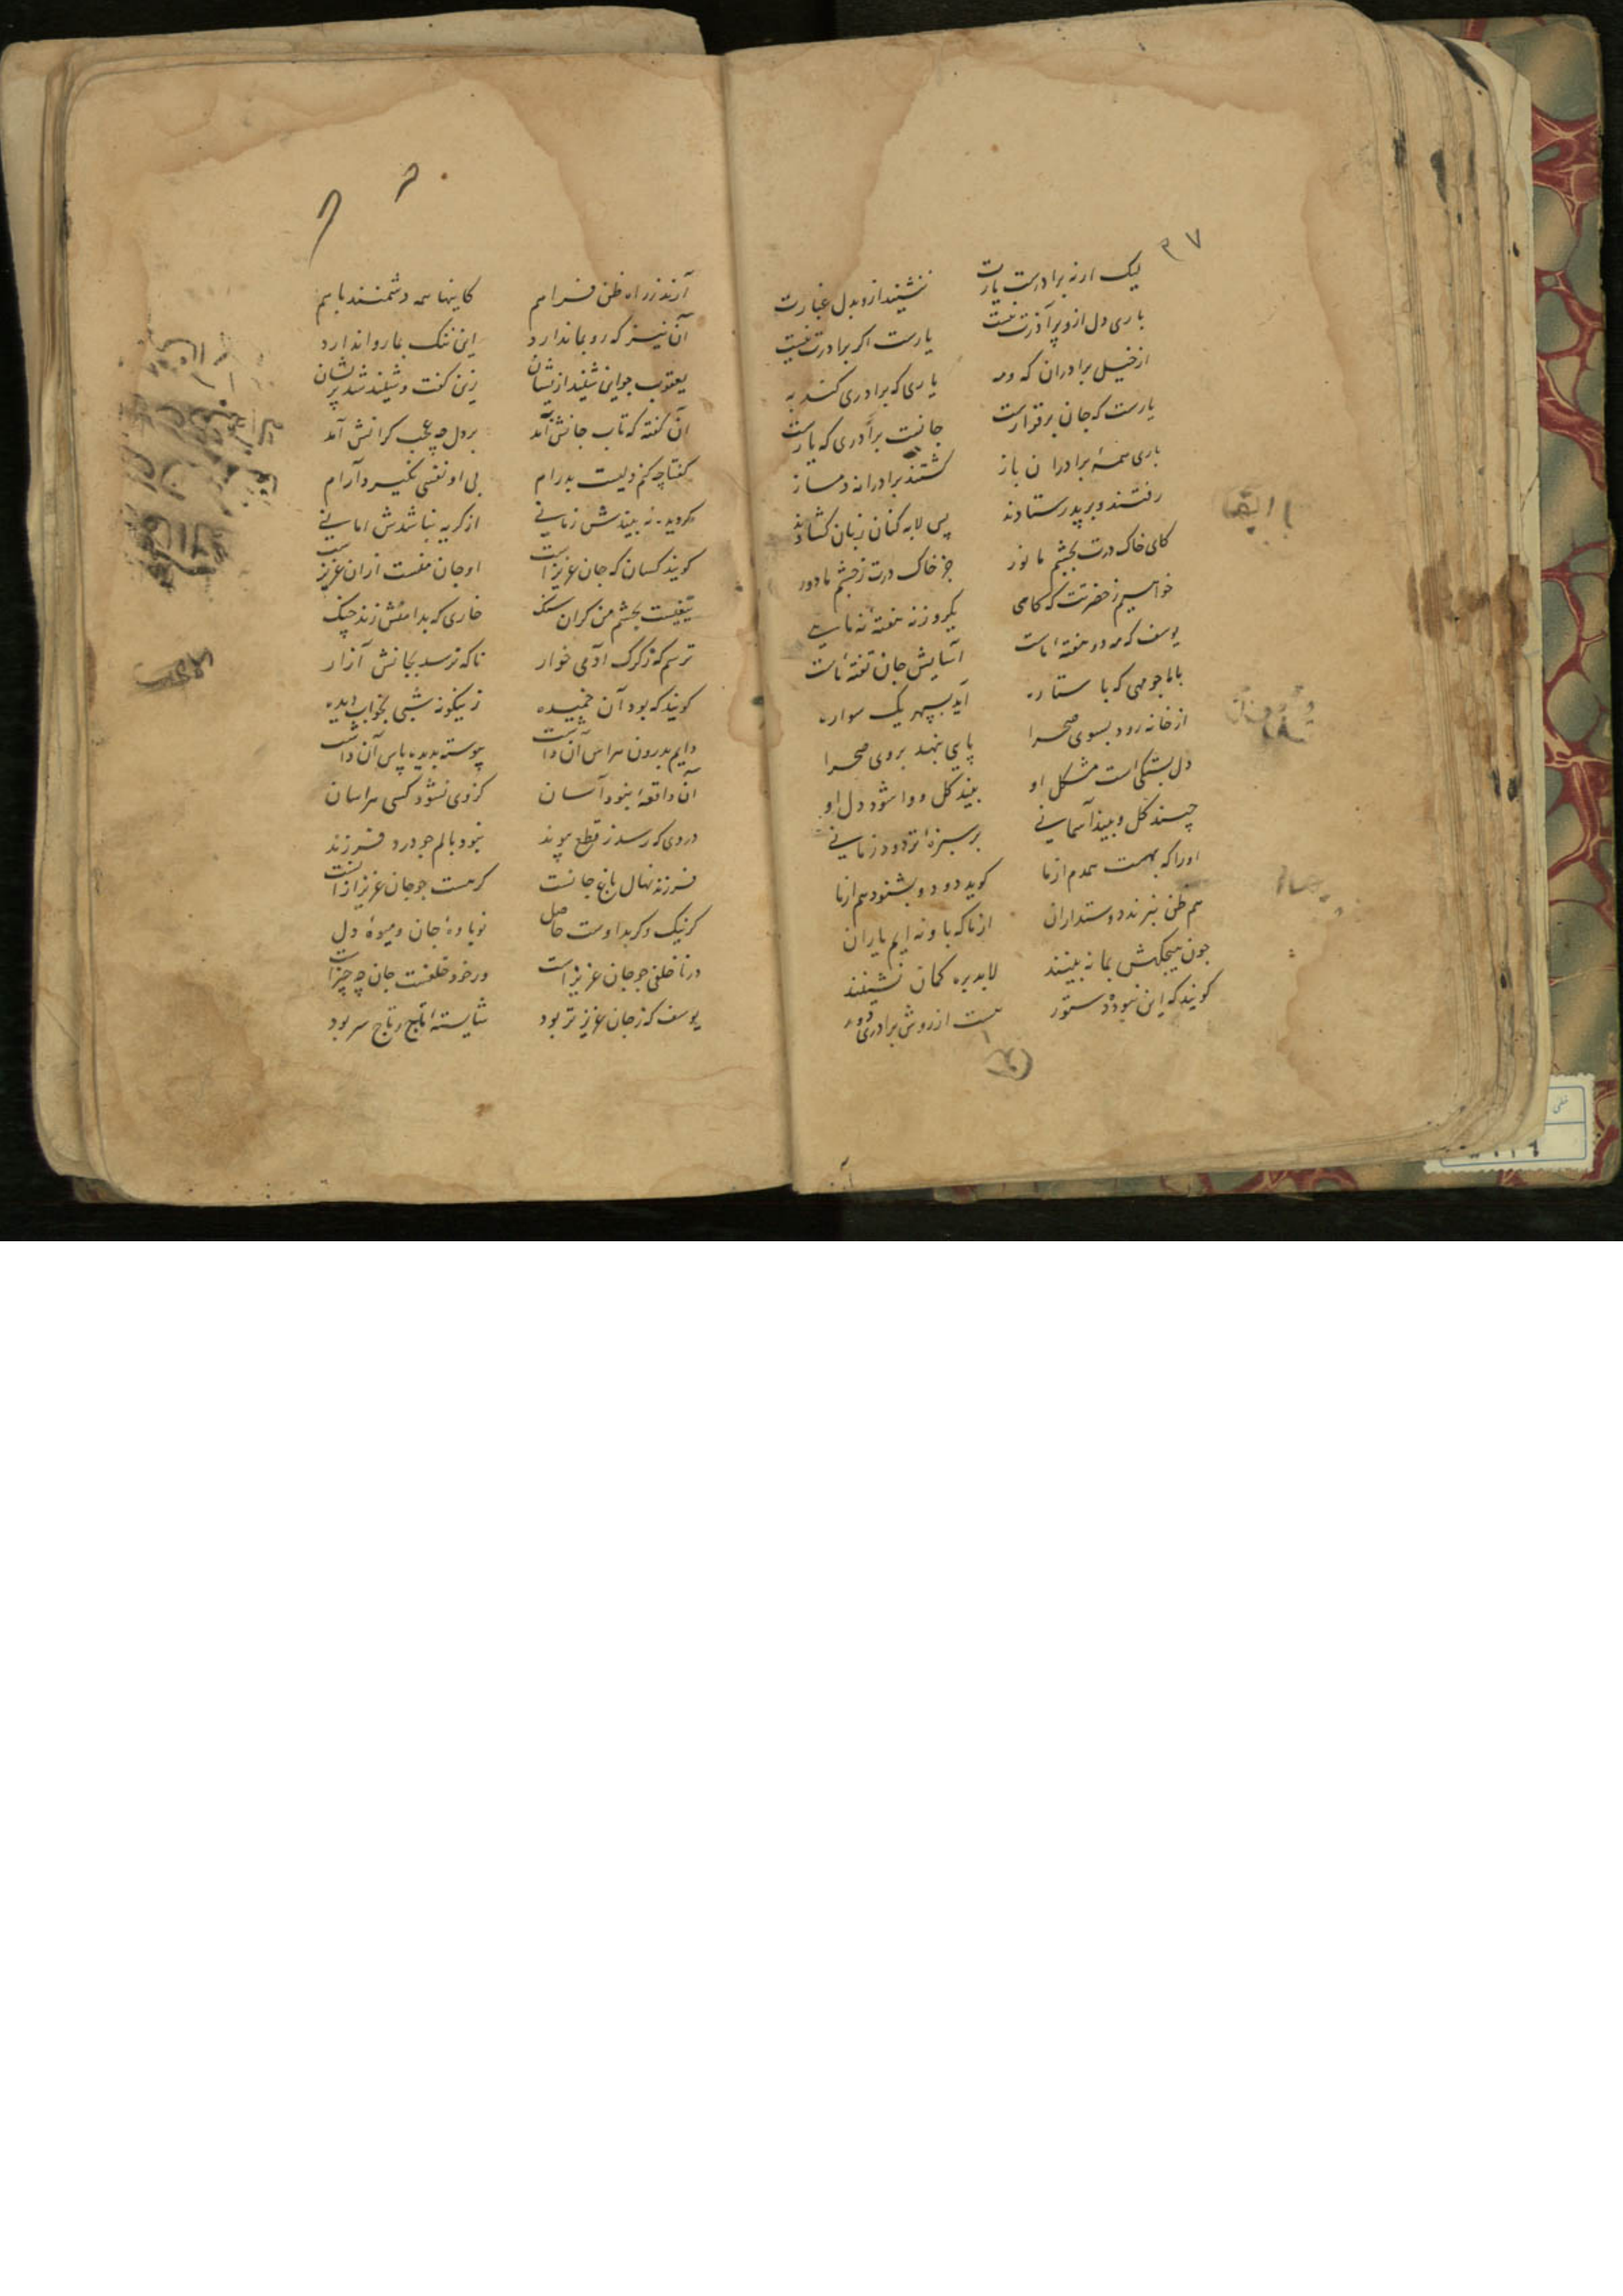 ۳۷
لیک ار نه برادرست یارت ننشیند ازو بدل غبارت
باری دل ازو پر آذرت نیست یارست اگر برادرت نیست
از خیل برادران که و مه یاری که برادری کند به
یارست که جان برقرارست جانست برادری که یارست
باری همهٔ برادران باز گشتند برادرانه دمساز
رفتند و بر پدر ستادند پس لابه کنان زبان گشادند
کای خاک درت بچشم ما نور جز خاک درت ز چشم ما دور
خواهیم ز حضرتت که کامی یکروز نه هفتهٔ نه
یوسف که مه دو هفتهٔ ماست آسایش جان تفتهٔ ماست
با ما چو مهی که با ستاره آید بسپهر یک سواره
از خانه رود بسوی صحرا پای بنهد بروی صحرا
دل بستگی است مشکل او بیند گل و وا شود دل او
چیند گل و بیند آسمانی بر سبزهٔ تر دود زمانی
او را که بهست همدم از ما گوید دو دو بشنود هم از ما
هم ظن نبرند دوستداران از ما که با و نه ایم یاران
چون هیچگهش بما نه بینند لابد بره گمان نشینند
گویند که این نبوده دستور هست از روش برادری دور
آرند ز راه ظن فراهم کاینها همه دشمنند با هم
آن نیز که رو بما ندارد این ننگ بما روا ندارد
یعقوب چو این شنید ازیشان زین گفت و شنید شد پریشان
آن گفته که تاب جانش آمد بر دل چه عجب گرانش آمد
گفتا چکنم دلیست بد رام بی او نفسی نگیرد آرام
گر دیده نه بیندش زمانی از گریه نباشدش امانی
گویند کسان که جان عزیز است او جان منست ازان عزیز است
تیغیست بچشم من گران سنگ خاری که بدامنش زند چنگ
ترسم که ز گرگ آدمی خوار ناگه نرسد بجانش آزار
گویند که بود آن خمیده زینگونه شبی بخواب دیده
دایم بدرون هراس آن داشت پیوسته بدیده پاس آن داشت
آن واقعه ابنود آسان کز وی نشود کسی هراسان
دردی که رسد ز قطع پیوند نبود بالم چو درد فرزند
فرزند نهال باغ جانست گر هست چو جان عزیز از آنست
گر نیک و گر بد اوست حاصل نوبادهٔ جان و میوهٔ دل
در ناخلفی چو جان عزیز است ور خود خلفست جان چه چیز است
یوسف که ز جان عزیز تر بود شایستهٔ تاج و تاج سر بود